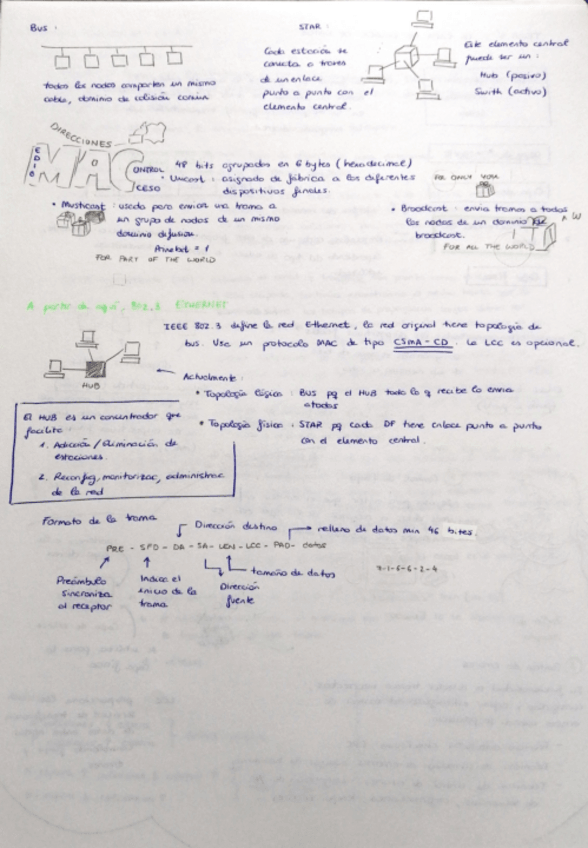 BUS :
todos los nodos comparten un mismo
cable, dominio de colisión común
STAR :
Cada estación se
conecta a través
de un enlace
punto a punto con el
elemento central.
Este elemento central
puede ser un :
Hub (pasivo)
Swith (activo)
DIRECCIONES
MEDIO
MAC
CONTROL
ACCESO
48 bits agrupados en 6 bytes (hexadecimal)
• Unicast : asignado de fábrica a los diferentes
dispositivos finales.
FOR ONLY YOU
• Multicast : usado para enviar una trama a
un grupo de nodos de un mismo
dominio difusión.
FOR PART OF THE WORLD
• Broadcast : envia tramas a todos
los nodos de un dominio de
broadcast.
FOR ALL THE WORLD
A partir de aquí, 802.3 ETHERNET
IEEE 802.3 define la red Ethernet, la red original tiene topología de
bus. Usa un protocolo MAC de tipo CSMA-CD. La LCC es opcional.
HUB
Actualmente :
• Topología lógica : BUS pq el HUB todo lo q recibe lo envia
a todos
• Topología física : STAR pq cada DF tiene enlace punto a punto
con el elemento central.
El HUB es un concentrador que
facilita
1. Adición / Eliminación de
estaciones.
2. Reconfig, monitorizac, administrac
de la red
Formato de la trama
Dirección destino
relleno de datos min 46 bites.
PRE - SFD - DA - SA - LEN - LCC - PAD - datos
7-1-6-6-2-4
tamaño de datos
Preámbulo
sincroniza
al receptor
Indica el
inicio de la
trama
Dirección
fuente